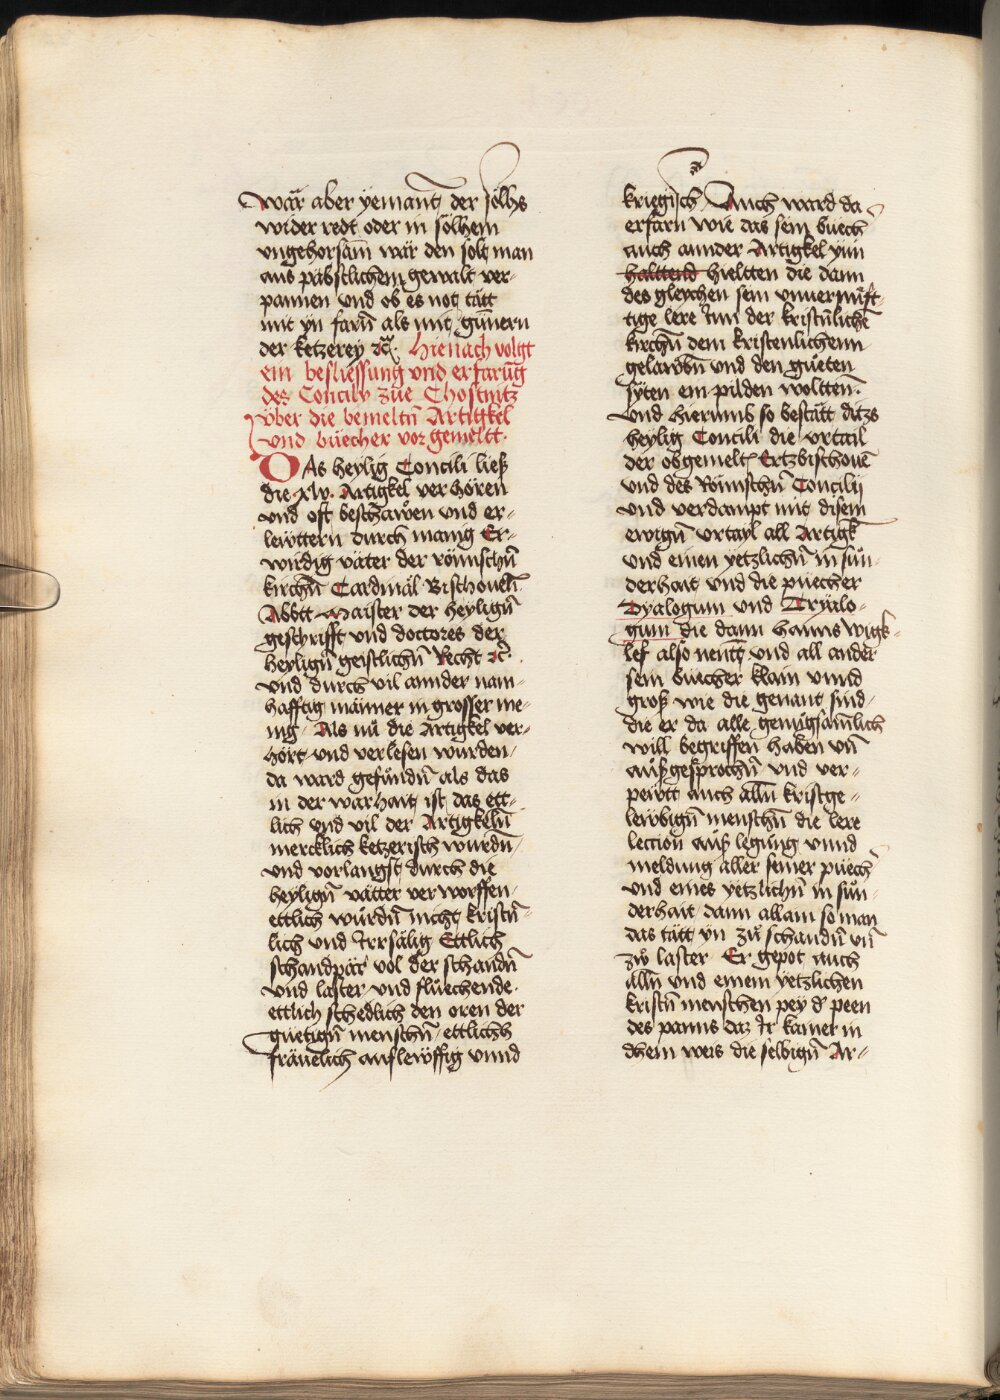 wär aber yemant̄ der sölhs
wider redt oder in sölhem
vngehorsam̄ wär den solt man
aus päbstlichem gewalt ver-
pannen vnd ob es not tätt
mit yn farn̄ als mit gunnern
der ketzerey ꝛc̄. Hienach volgt
ein besliessung vnd erfarūg
des Concily zue Chostnitz
vber die bemeltn̄ Artigkel
vnd buecher vor gemeltt.
DAs heylig Concili ließ
die xlv. Artigkel verhören
vnd oft beschawen vnd er-
lewttern durch manig Er-
wirdig väter der römischn̄
kirchn̄ Cardinäl Bischouen
Abbtt Maister der heylign̄
geschrifft vnd doctores der
heylign̄ geistlichn̄ Recht ꝛc̄.
vnd durch vil annder nam-
hafftig männer in grosser me-
nig. Als nū die Artigkel ver-
hört vnd verlesen wurden
da ward gefundn̄ als das
in der warhait ist das ett-
lich vnd vil der Artigkeln̄
mercklich ketzerisch wurdn̄
vnd vorlangst durch die
heylign̄ vätter verworffen
ettlich würdn̄ nicht kristn̄-
lich vnd Irrsälig Ettlich
schandpär vol der schandn̄
vnd laster vnd fluechende.
ettlich schedlich den oren der
guetign̄ menschn̄ ettlichh
fräuelich auflewffig vnnd
kriegisch Auch ward da
erfarn wie das sein buech
auch annder Artigkel ynn
halttend hieltten die dann
des gleychen sein vnuernuft-
tige lere Inn der kristnlichē
kirchn̄ dem kristenlichenn
gelawbn̄ vnd den gueten
syten ein pilden woltten.
vnd hierumb so bestätt ditzs
heylig Concili die vrtail
der obgemelt Ertzbischouē
vnd des Römischn̄ Concilij
vnd verdampt mit disem
ewign̄ vrtayl all Artigk
vnd einen yetzlichn̄ in sun-
derhait vnd die puecher
Dyalogum vnd Tryalo-
gum die dann hanns wigk-
lef also nentt vnd all ander
sein buecher klain vnnd
groß wie die genant sind
die er da alle genugsamlich
will begriffen haben vn̄
außgesprochn̄ vnd ver-
pewtt auch alln̄ kristge-
lewbign̄ menschn̄ die lere
lection auß legung vnnd
meldung aller seiner puech
vnd eines yetzlichn̄ in sun-
derhait dann allain so man
das tätt yn zu schandn̄ vn̄
zu laster Er gepot auch
alln̄ vnd einem yetzlichen
kristn̄ menschen pey d' peen
des panns daz Ir kainer in
dhein weis die selbign̄ Ar-